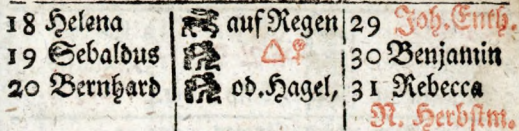 18 Helena auf Regen 29 Joh. Enth.
19 Sebaldus △♀ 30 Benjamin
20 Bernhard od. Hagel, 31 Rebecca
N. Herbstm.